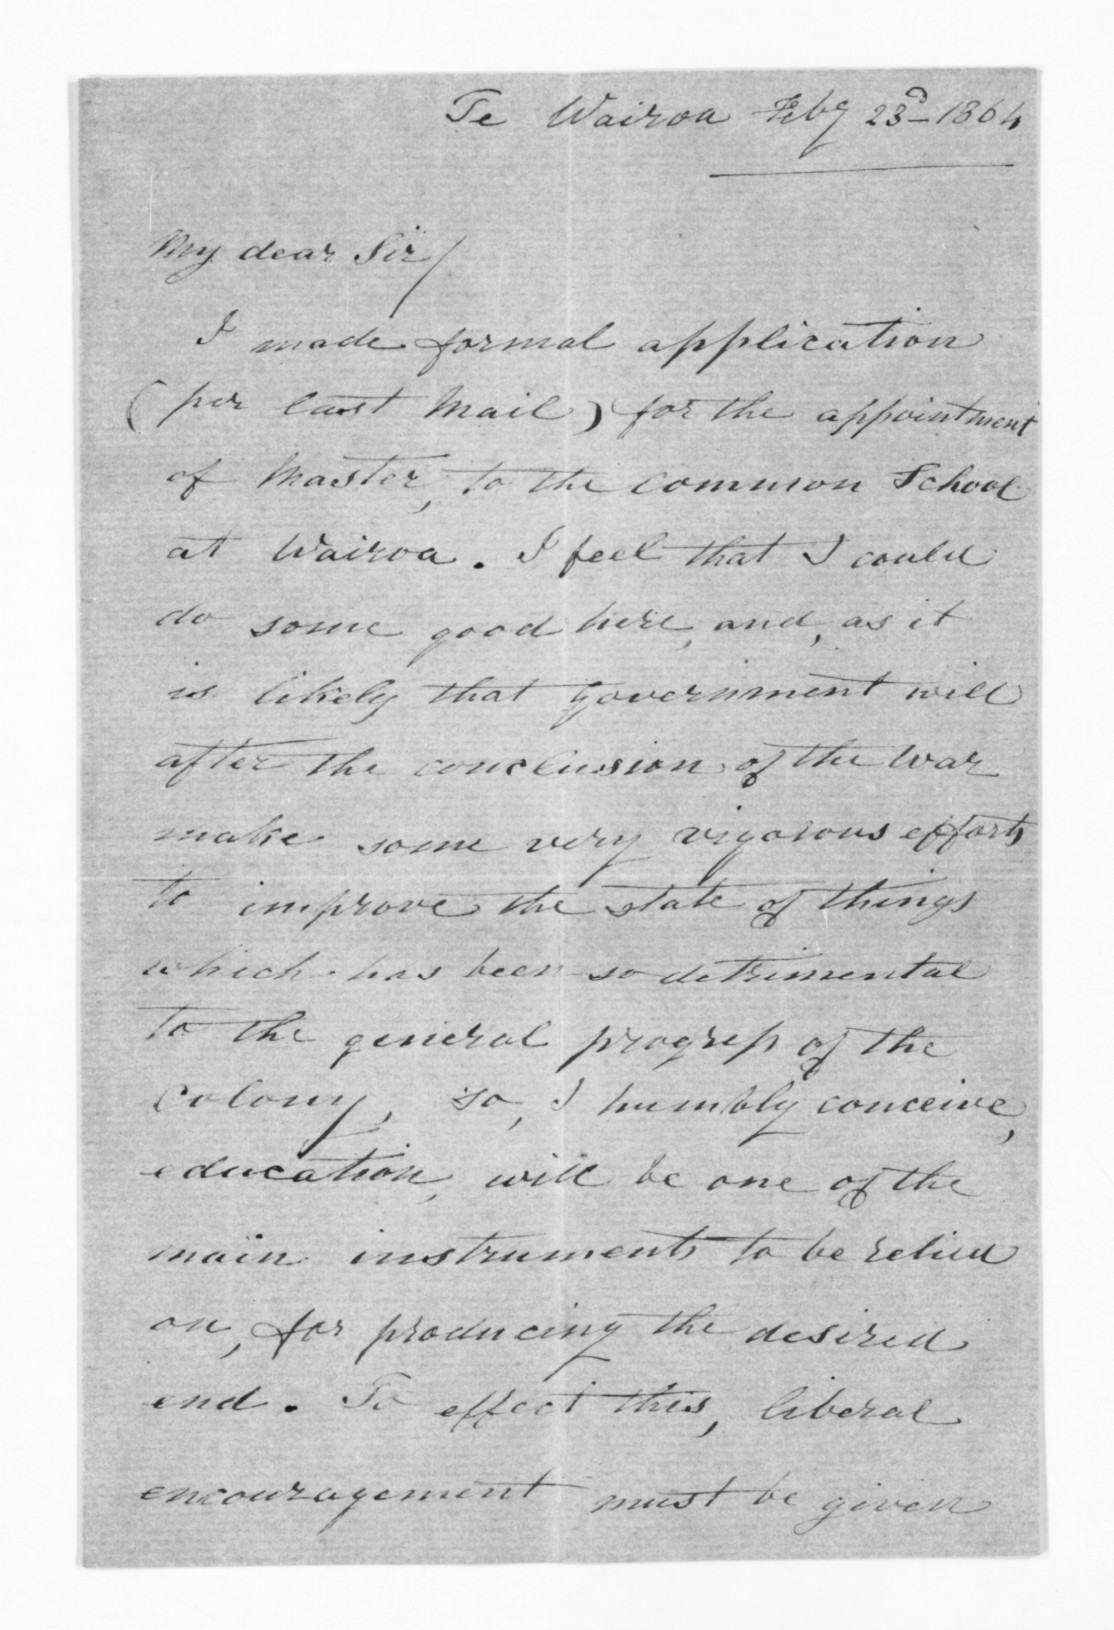 Te Wairoa Feby 23d - 1864
My dear Sir/
I made formal application
(per last Mail) for the appointment
of Master, to the common School
at Wairoa. I feel that I could
do some good here, and, as it
is likely that Government will
after the conclusion of the War
make some very vigorous efforts
to improve the state of things
which has been so detrimental
to the general progress of the
colony, so, I humbly conceive,
education, will be one of the
main instruments to be relied
on, for producing the desired
end. To effect this, liberal
encouragement must be given